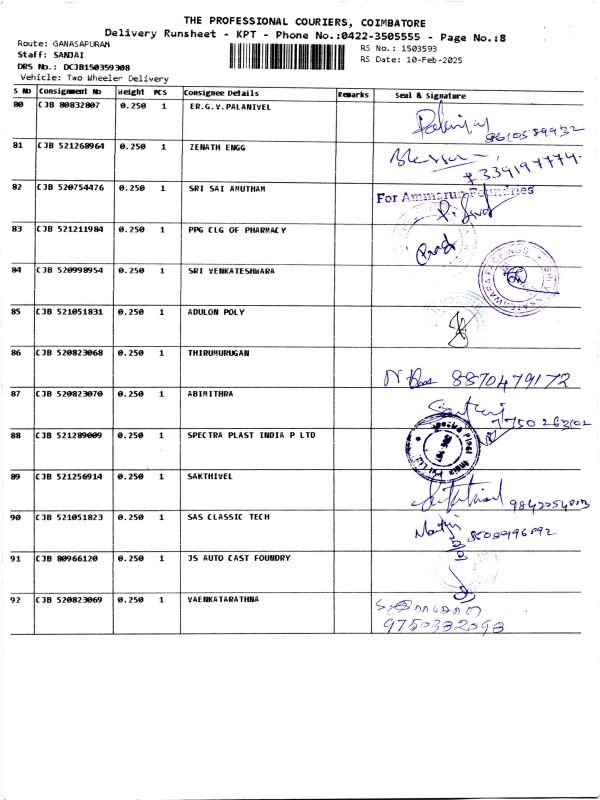 THE PROFESSIONAL COURIERS, COIMBATORE
Delivery Runsheet - KPT - Phone No.:0422-3505555 - Page No.:8
Route: GANASAPURAM
RS No.: 1503593
Staff: SANJAI
RS Date: 10-Feb-2025
DRS No.: DCJB150359308
Vehicle: Two Wheeler Delivery
S No Consignment No Weight PCS Consignee Details Remarks Seal & Signature
80 CJB 80832807 0.250 1 ER.G.V.PALANIVEL
8610589932
81 CJB 521268964 0.250 1 ZENATH ENGG
82 CJB 520754476 0.250 1 SRI SAI AMUTHAM
For Ammarun Foundries
83 CJB 521211984 0.250 1 PPG CLG OF PHARMACY
84 CJB 520998954 0.250 1 SRI VENKATESHWARA
85 CJB 521051831 0.250 1 ADULON POLY
86 CJB 520823068 0.250 1 THIRUMURUGAN
8870479172
87 CJB 520823070 0.250 1 ABIMITHRA
88 CJB 521289009 0.250 1 SPECTRA PLAST INDIA P LTD
89 CJB 521256914 0.250 1 SAKTHIVEL
90 CJB 521051823 0.250 1 SAS CLASSIC TECH
91 CJB 80966120 0.250 1 JS AUTO CAST FOUNDRY
92 CJB 520823069 0.250 1 VAENKATARATHNA
9750332093